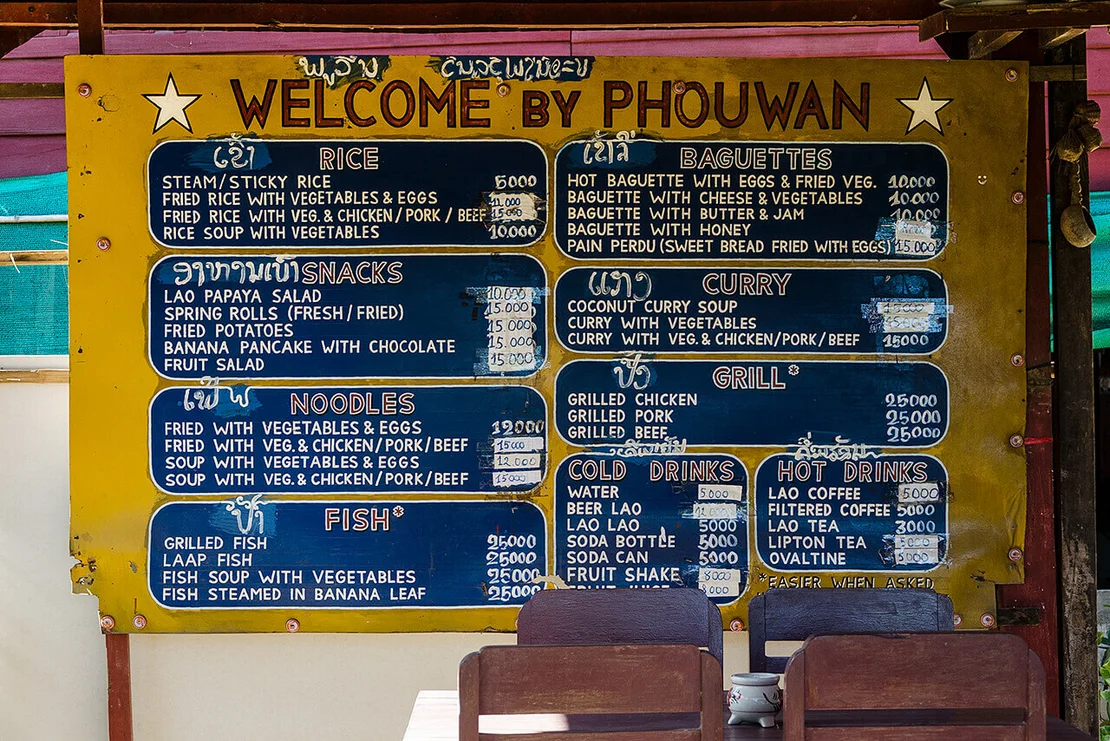 WELCOME BY PHOUWAN
ເຂົ້າ RICE
STEAM/STICKY RICE 5000
FRIED RICE WITH VEGETABLES & EGGS 11.000
FRIED RICE WITH VEG. & CHICKEN/PORK/BEEF 15000
RICE SOUP WITH VEGETABLES 10.000
SNACKS
LAO PAPAYA SALAD 10.000
SPRING ROLLS (FRESH/FRIED) 15.000
FRIED POTATOES 15.000
BANANA PANCAKE WITH CHOCOLATE 15.000
FRUIT SALAD 15.000
NOODLES
FRIED WITH VEGETABLES & EGGS 12000
FRIED WITH VEG. & CHICKEN/PORK/BEEF 15000
SOUP WITH VEGETABLES & EGGS 12.000
SOUP WITH VEG. & CHICKEN/PORK/BEEF 15000
ປາ FISH*
GRILLED FISH 25000
LAAP FISH 25000
FISH SOUP WITH VEGETABLES 25000
FISH STEAMED IN BANANA LEAF 25000
BAGUETTES
HOT BAGUETTE WITH EGGS & FRIED VEG. 10.000
BAGUETTE WITH CHEESE & VEGETABLES 10.000
BAGUETTE WITH BUTTER & JAM 10.000
BAGUETTE WITH HONEY
PAIN PERDU (SWEET BREAD FRIED WITH EGGS) 15.000
ແກງ CURRY
COCONUT CURRY SOUP 15000
CURRY WITH VEGETABLES
CURRY WITH VEG. & CHICKEN/PORK/BEEF 15000
ປີ້ງ GRILL*
GRILLED CHICKEN 25000
GRILLED PORK 25000
GRILLED BEEF 25000
COLD DRINKS
WATER 5000
BEER LAO
LAO LAO 5000
SODA BOTTLE 5000
SODA CAN 5000
FRUIT SHAKE 8000
FRUIT JUICE 8000
HOT DRINKS
LAO COFFEE 5000
FILTERED COFFEE 5000
LAO TEA 3000
LIPTON TEA 5000
OVALTINE 5000
*EASIER WHEN ASKED